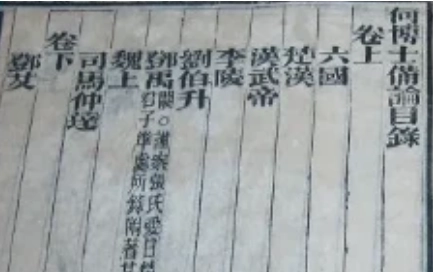 何博士備論目錄
卷上
六國
楚漢
漢武帝
李陵
劉伯升
鄧禹闕○謹案張氏愛日
子準處所錄附著其
魏上
司馬仲達
卷下
鄧艾